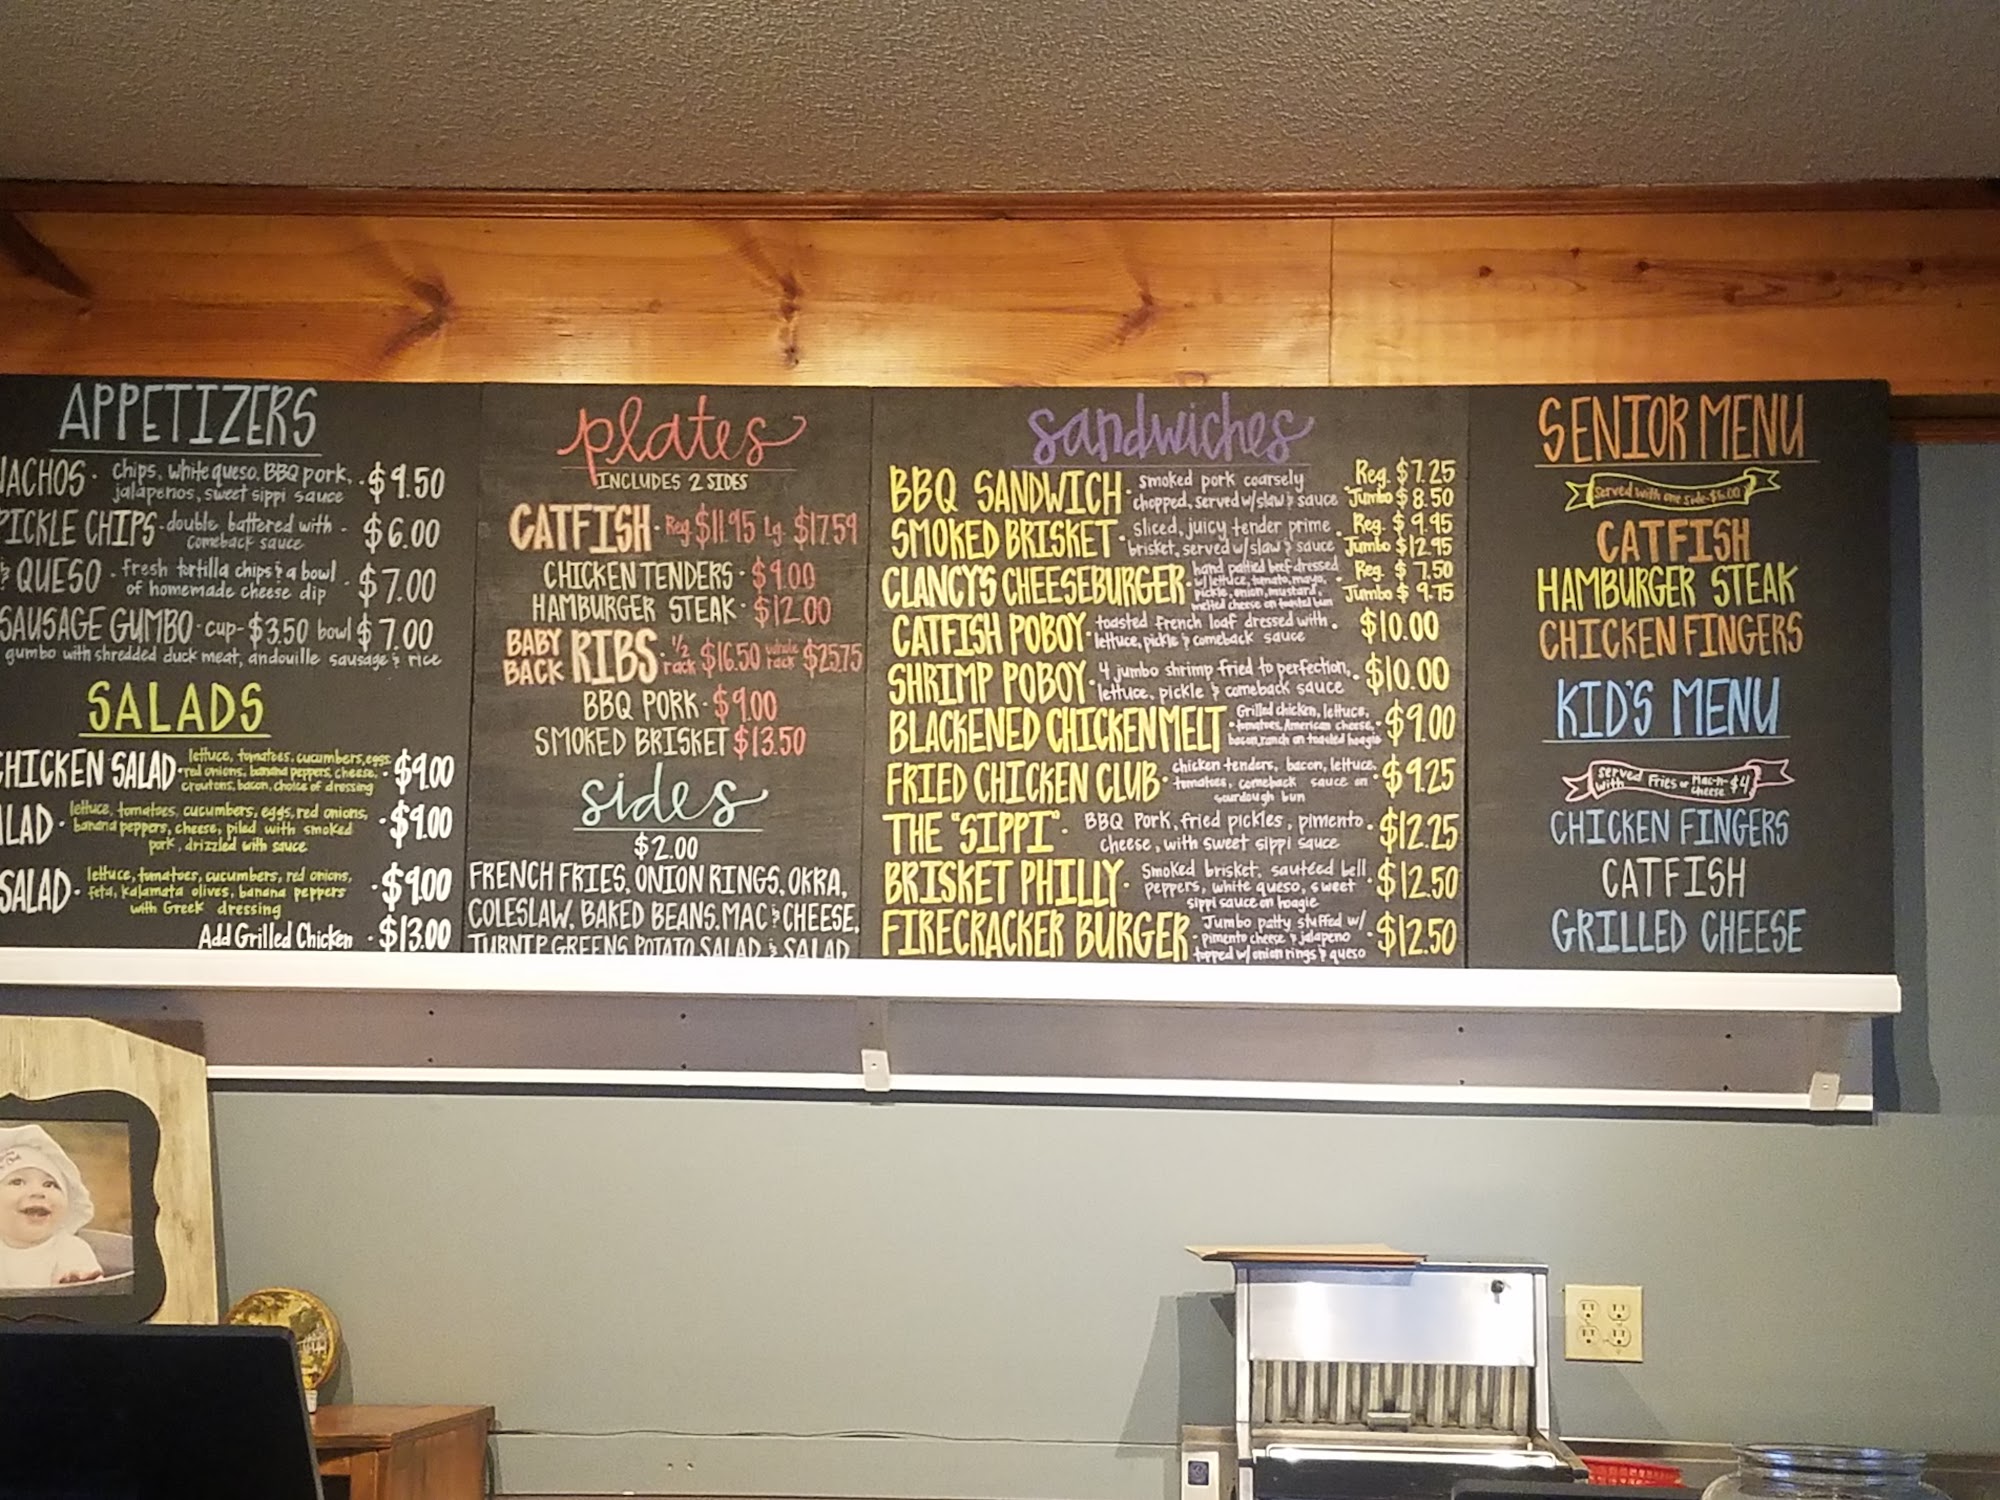 APPETIZERS
NACHOS · chips, white queso, BBQ pork, · $9.50
jalapenos, sweet sippi sauce
PICKLE CHIPS · double battered with · $6.00
comeback sauce
QUESO · fresh tortilla chips & a bowl · $7.00
of homemade cheese dip
SAUSAGE GUMBO · cup- $3.50 bowl $7.00
gumbo with shredded duck meat, andouille sausage & rice
SALADS
CHICKEN SALAD · lettuce, tomatoes, cucumbers, eggs · $9.00
red onions, banana peppers, cheese,
croutons, bacon, choice of dressing
LAD · lettuce, tomatoes, cucumbers, eggs, red onions, · $9.00
banana peppers, cheese, piled with smoked
pork, drizzled with sauce
SALAD · lettuce, tomatoes, cucumbers, red onions, · $9.00
feta, kalamata olives, banana peppers
with Greek dressing
Add Grilled Chicken · $13.00
plates
INCLUDES 2 SIDES
CATFISH · Reg. $11.95 Lg. $17.59
CHICKEN TENDERS · $9.00
HAMBURGER STEAK · $12.00
BABY BACK RIBS · 1/2 rack $16.50 whole rack $25.75
BBQ PORK · $9.00
SMOKED BRISKET $13.50
sides
$2.00
FRENCH FRIES, ONION RINGS, OKRA,
COLESLAW, BAKED BEANS, MAC & CHEESE,
TURNIP GREENS, POTATO SALAD & SALAD
sandwiches
BBQ SANDWICH · smoked pork coarsely Reg. $7.25
chopped, served w/slaw & sauce Jumbo $8.50
SMOKED BRISKET · sliced, juicy tender prime · Reg. $9.95
brisket, served w/slaw & sauce Jumbo $12.95
CLANCY'S CHEESEBURGER · hand pattied beef dressed Reg. $7.50
w/lettuce, tomato, mayo,
pickle, onion, mustard, Jumbo $9.75
melted cheese on toasted bun
CATFISH POBOY · toasted french loaf dressed with · $10.00
lettuce, pickle & comeback sauce
SHRIMP POBOY · 4 jumbo shrimp fried to perfection, · $10.00
lettuce, pickle & comeback sauce
BLACKENED CHICKEN MELT · Grilled chicken, lettuce, · $9.00
tomatoes, American cheese,
bacon, ranch on toasted hoagie
FRIED CHICKEN CLUB · chicken tenders, bacon, lettuce, · $9.25
tomatoes, comeback sauce on
sourdough bun
THE "SIPPI" · BBQ Pork, fried pickles, pimento · $12.25
cheese, with sweet sippi sauce
BRISKET PHILLY · Smoked brisket, sautéed bell · $12.50
peppers, white queso, sweet
sippi sauce on hoagie
FIRECRACKER BURGER · Jumbo patty stuffed w/ · $12.50
pimento cheese & jalapeno
topped w/onion rings & queso
SENIOR MENU
served with one side-$6.00
CATFISH
HAMBURGER STEAK
CHICKEN FINGERS
KID'S MENU
served with Fries or Mac-n-cheese $4
CHICKEN FINGERS
CATFISH
GRILLED CHEESE